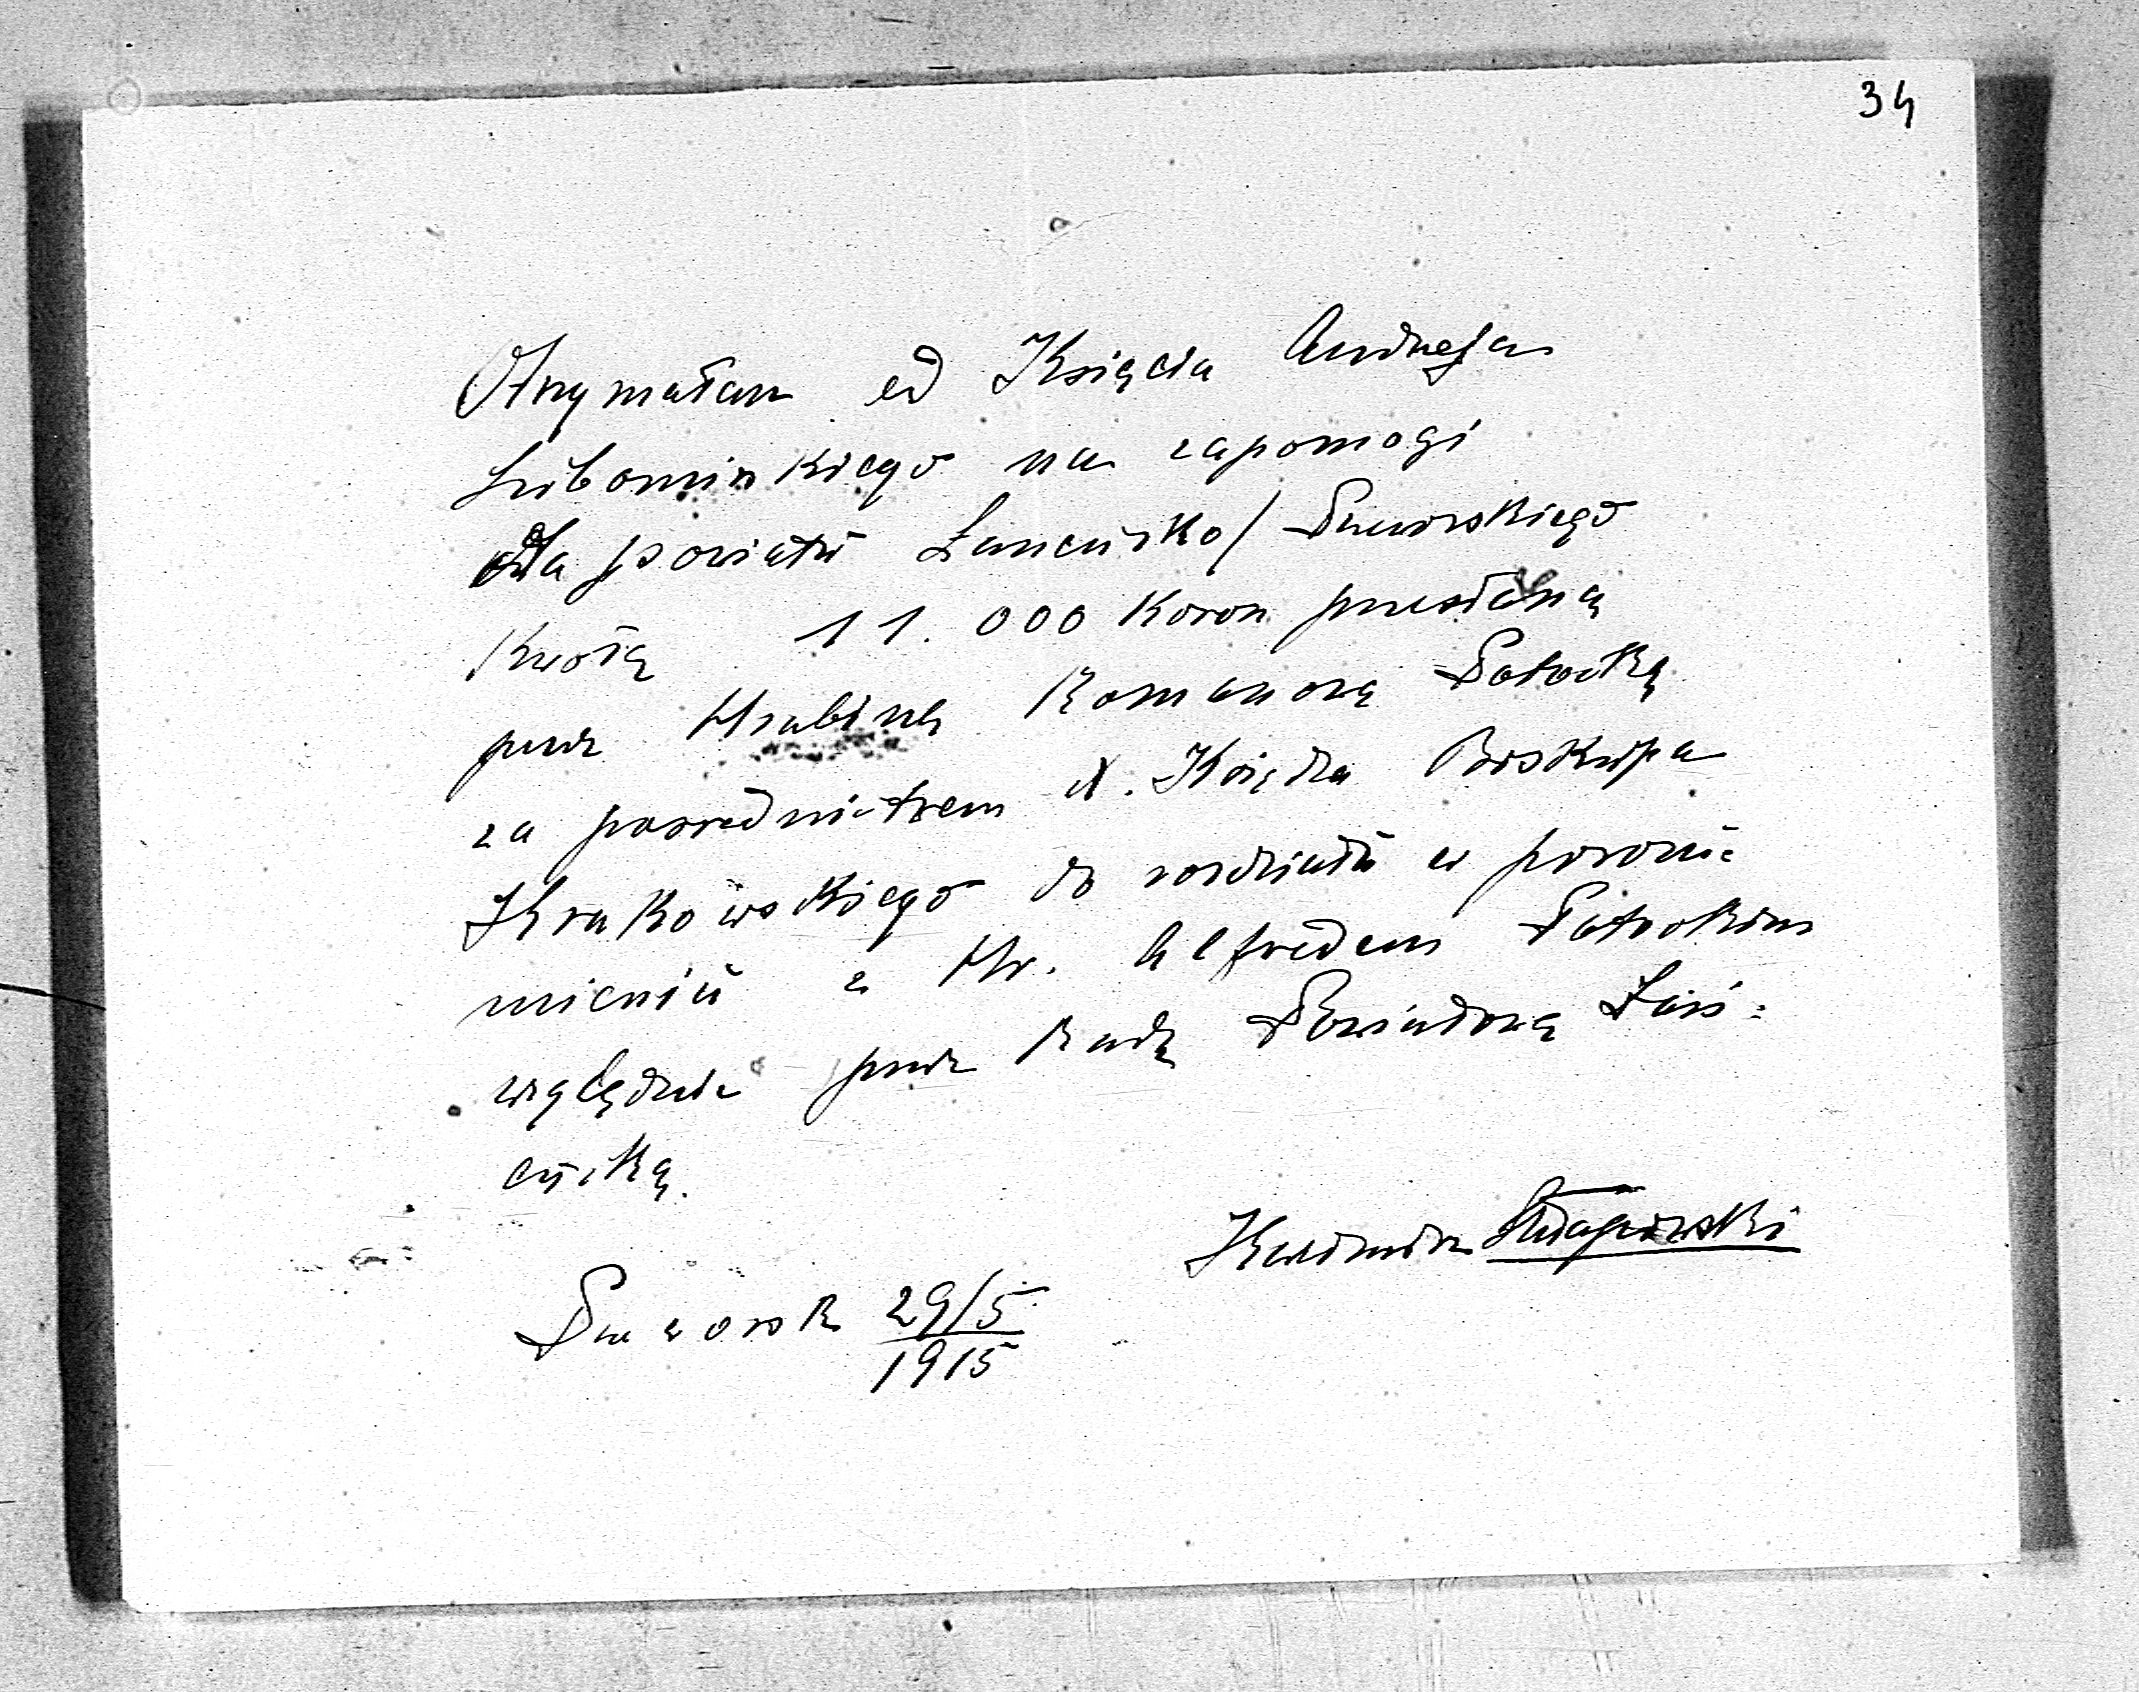 34
Otrzymałem od Księcia Andrzeja
Lubomirskiego na zapomogi
dla powiatu Łańcucko/Przeworskiego
kwotę 11.000 Koron przesłaną
przez Hrabinę Romanową Potocką
za pośrednictwem X. Księdza Biskupa
Krakowskiego do rozdziału w porozu=
mieniu z Hr. Alfredem Potockim
względnie przez Radę Powiatową Łań=
cucką.
Kazimierz
Przeworsk 29/5
1915